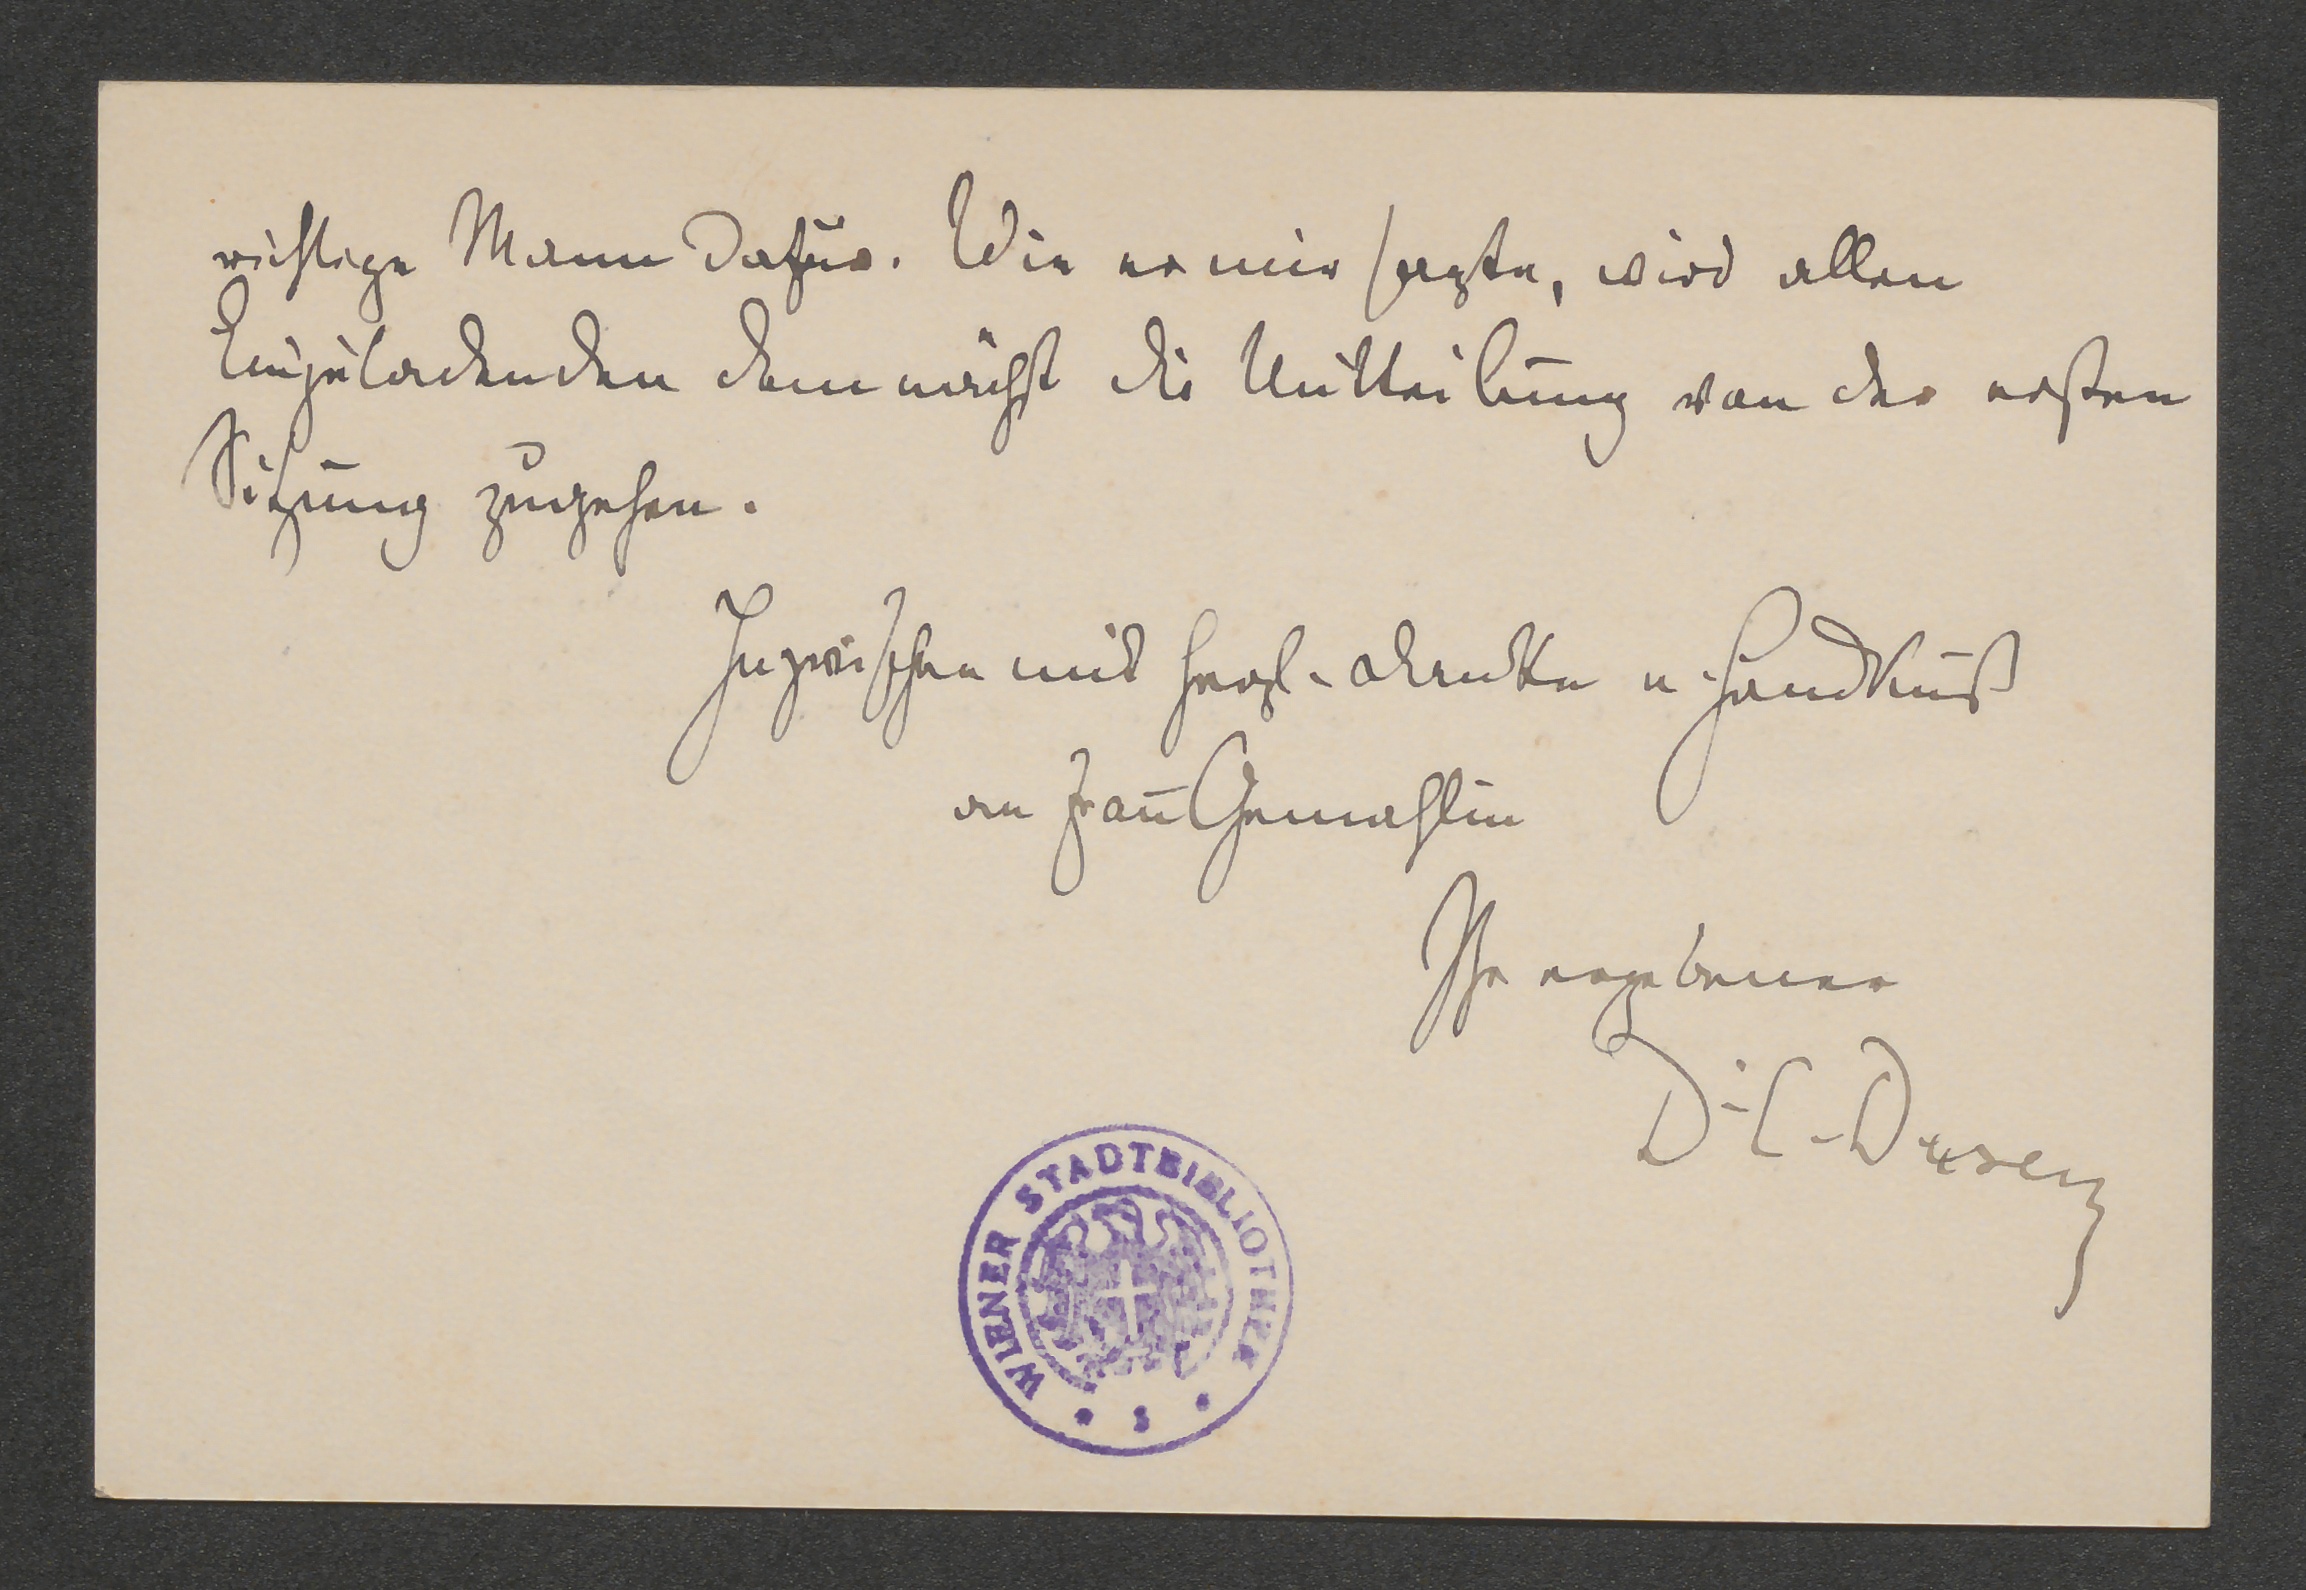 richtige Mann dafür. Wie er mir sagte, wird allen
Einzuladenden demnächst die Mitteilung von der ersten
Sitzung zugehen.
Inzwischen mit herzl. Danke u. Handkuß
an Frau Gemahlin
Ihr ergebener
WIENER STADTBIBLIOTHEK